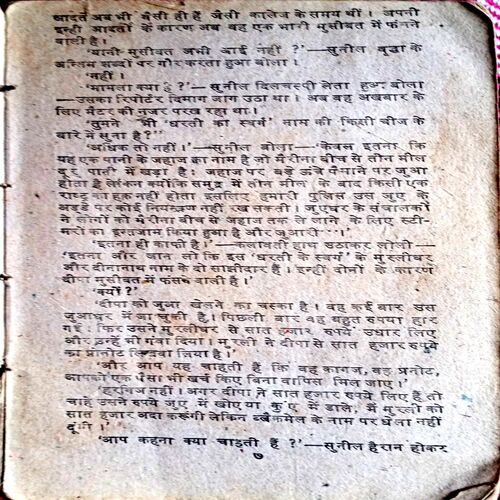 आदतें अब भी वैसी ही हैं जैसी कालेज के समय थीं । अपनी
इन्हीं आदतों के कारण अब वह एक भारी मुसीबत में फंसने
वाली है ।'
'यानी मुसीबत अभी आई नहीं ?'—सुनील वृद्धा के
अन्तिम शब्दों पर गौर करता हुआ बोला ।
'नहीं ।'
'मामला क्या है ?'—सुनील दिलचस्पी लेता हुआ बोला
—उसका रिपोर्टर दिमाग जाग उठा था । अब वह अखबार के
लिए मैटर की नजर परख रहा था ।
'तुमने भी 'धरती का स्वर्ग' नाम की किसी चीज के
बारे में सुना है ?''
'अधिक तो नहीं ।'—सुनील बोला—'केवल इतना कि
यह एक पानी के जहाज का नाम है जो मैरीना बीच से तीन मील
दूर पानी में खड़ा है : जहाज पर बड़े ऊंचे पैमाने पर जुआ
होता है लेकिन क्योंकि समुद्र में तीन मील के बाद किसी एक
राष्ट्र का हक नहीं होता इसलिए हमारी पुलिस उस जुए के
अड्डे पर कोई नियन्त्रण नहीं रख सकती । जुएघर के संचालकों
ने लोगों को मैरीना बीच से जहाज तक ले जाने के लिए स्टी-
मरों का इन्तजाम किया हुआ है और जुआरी...।'
'इतना ही काफी है ।'—कलावती हाथ उठाकर बोली—
'इतना और जान लो कि इस 'धरती के स्वर्ग' के मुरलीधर
और दीनानाथ नाम के दो साझीदार हैं । इन्हीं दोनों के कारण
दीपा मुसीबत में फंसने वाली है ।'
'क्यों ?'
'दीपा को जुआ खेलने का चस्का है । वह कई बार उस
जुआघर में जा चुकी है । पिछली बार वह बहुत रुपया हार
गई : फिर उसने मुरलीधर से सात हजार रुपये उधार लिए
और उन्हें भी गंवा दिया । मुरली ने दीपा से सात हजार रुपये
का प्रनोट लिखवा लिया है ।'
'और आप यह चाहती हैं कि वह कागज, वह प्रनोट,
आपको एक पैसा भी खर्च किए बिना वापिस मिल जाए ।'
'हरगिज नहीं । अगर दीपा ने सात हजार रुपये लिए हैं तो
चाहे उसने रुपये जुए में खोए या कुंए में डाले, मैं मुरली को
सात हजार अदा करूंगी लेकिन ब्लैकमेल के नाम पर धेला नहीं
दूंगी ।'
'आप कहना क्या चाहती हैं ?'—सुनील हैरान होकर
७